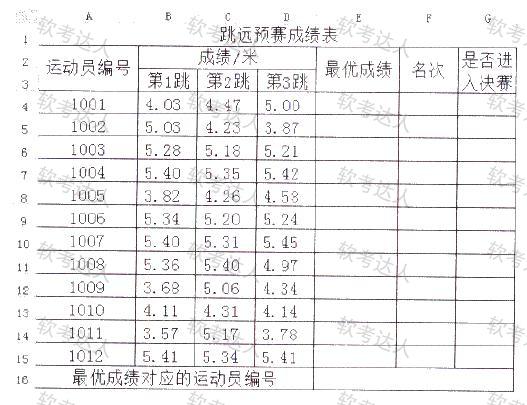 A B C D E F G
1 跳远预赛成绩表
2 运动员编号 成绩/米 最优成绩 名次 是否进入决赛
3 第1跳 第2跳 第3跳
4 1001 4.03 4.47 5.00
5 1002 5.03 4.23 3.87
6 1003 5.28 5.18 5.21
7 1004 5.40 5.35 5.42
8 1005 3.82 4.26 4.58
9 1006 5.34 5.20 5.24
10 1007 5.40 5.31 5.45
11 1008 5.36 5.40 4.97
12 1009 3.68 5.06 4.34
13 1010 4.11 4.31 4.14
14 1011 3.57 5.17 3.78
15 1012 5.41 5.34 5.41
16 最优成绩对应的运动员编号
软考达人